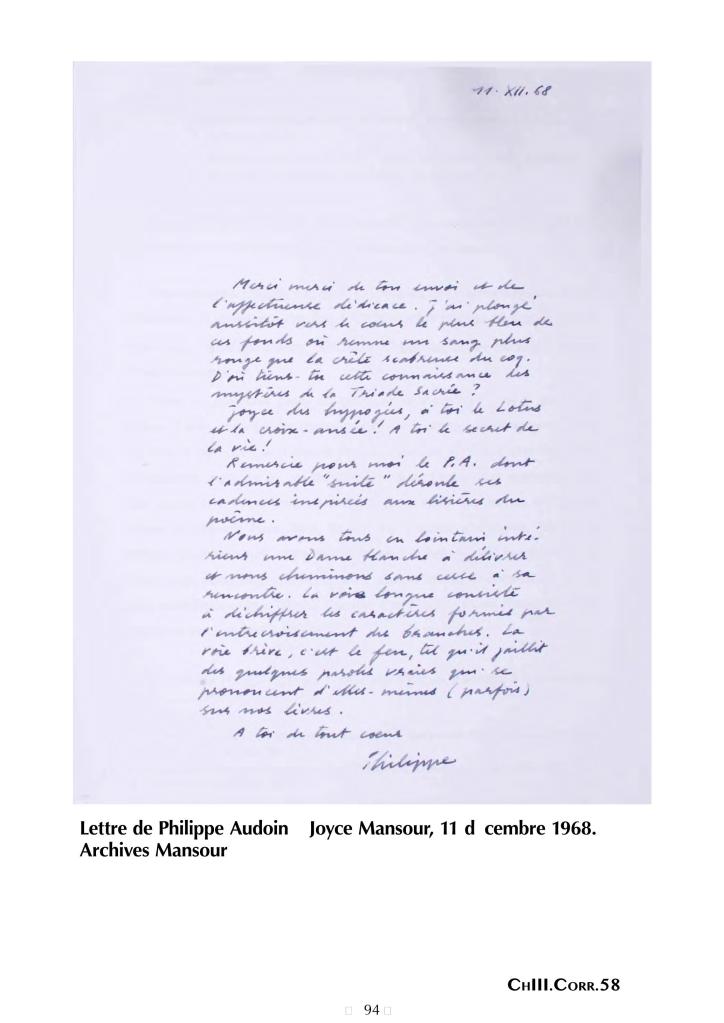 11. XII. 68
Merci merci de ton envoi et de
l'affectueuse dédicace. J'ai plongé
aussitôt vers le cœur le plus bleu de
ces fonds où remue un sang plus
rouge que la crête scabreuse du coq.
D'où tiens-tu cette connaissance des
mystères de la Triade Sacrée ?
Joyce des hypogées, à toi le Lotus
et la croix-ansée ! A toi le secret de
la vie !
Remercie pour moi le P.A. dont
l'admirable "suite" déroule ses
cadences inspirées aux lisières du
poème.
Nous avons tous en lointain inté-
rieur une Dame blanche à délivrer
et nous cheminons sans cesse à sa
rencontre. La voie longue consiste
à déchiffrer les caractères formés par
l'entrecroisement des branches. La
voie brève, c'est le feu, tel qu'il jaillit
des quelques paroles vraies qui se
prononcent d'elles-mêmes (parfois)
sur nos lèvres.
A toi de tout coeur
Philippe
Lettre de Philippe Audoin Joyce Mansour, 11 d cembre 1968.
Archives Mansour
CHIII.CORR.58
94